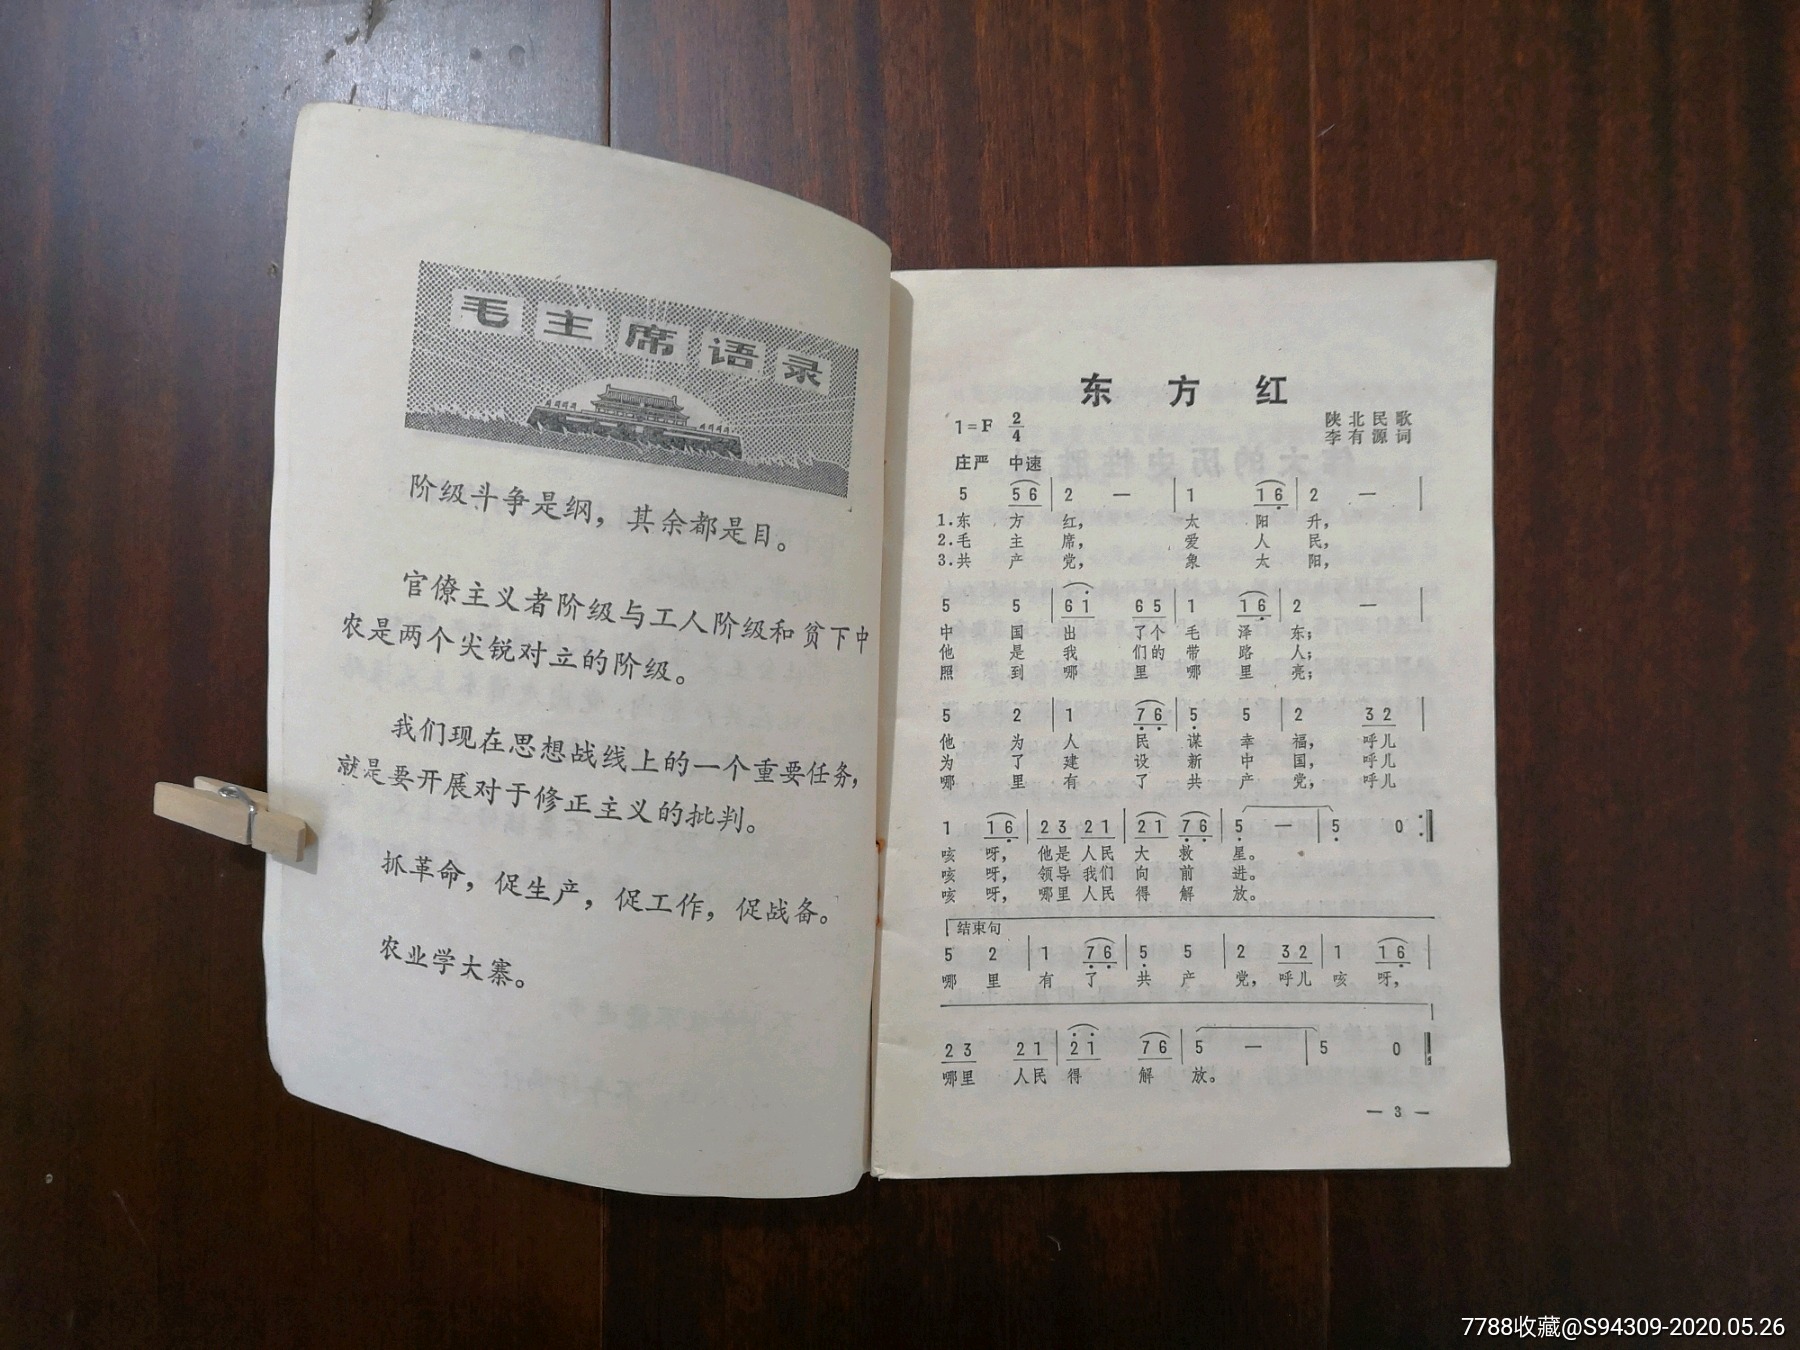 毛主席语录
阶级斗争是纲，其余都是目。
官僚主义者阶级与工人阶级和贫下中
农是两个尖锐对立的阶级。
我们现在思想战线上的一个重要任务，
就是要开展对于修正主义的批判。
抓革命，促生产，促工作，促战备。
农业学大寨。
东方红
1=F 2/4
陕北民歌
李有源词
庄严 中速
5 5 6 | 2 — | 1 1 6 | 2 — |
1.东方红，太阳升，
2.毛主席，爱人民，
3.共产党，象太阳，
5 5 | 6 1 6 5 | 1 1 6 | 2 — |
中国出了个毛泽东；
他是我们的带路人；
照到哪里哪里亮；
5 2 | 1 7 6 | 5 5 | 2 3 2 |
他为人民谋幸福，呼儿
为了建设新中国，呼儿
哪里有了共产党，呼儿
1 1 6 | 2 3 2 1 | 2 1 7 6 | 5 — | 5 0 :‖
咳呀，他是人民大救星。
咳呀，领导我们向前进。
咳呀，哪里人民得解放。
结束句
5 2 | 1 7 6 | 5 5 | 2 3 2 | 1 1 6 |
哪里有了共产党，呼儿咳呀，
2 3 2 1 | 2 1 7 6 | 5 — | 5 0 ‖
哪里人民得解放。
— 3 —
7788收藏@S94309-2020.05.26